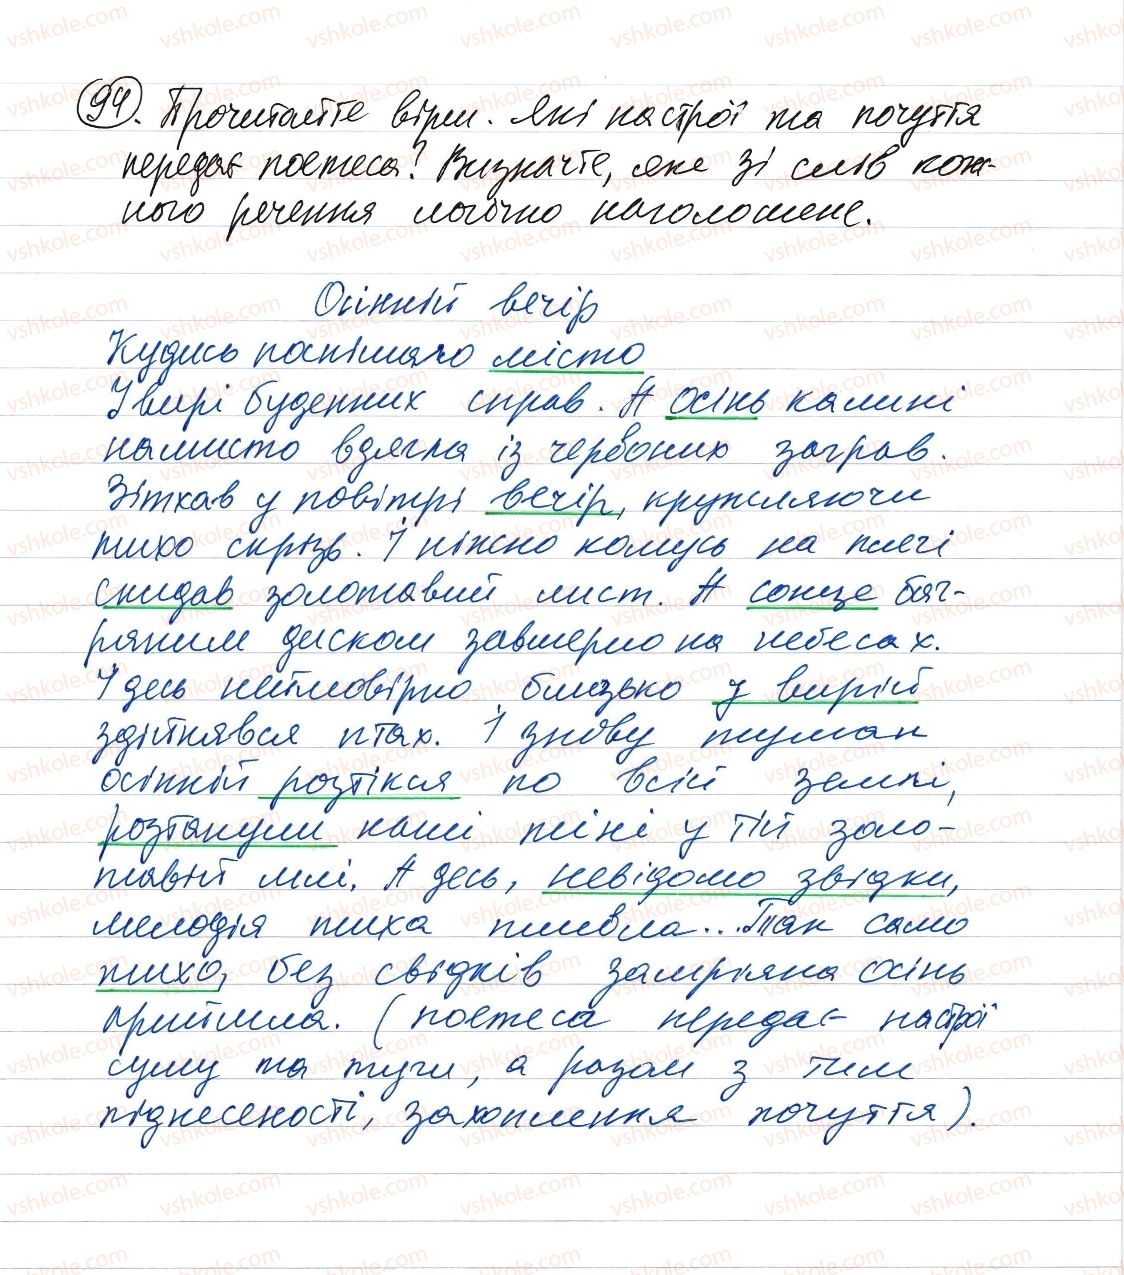 94. Прочитайте вірш. Які настрої та почуття
передає поетеса? Визначте, яке зі слів кож-
ного речення логічно наголошене.
Осінній вечір
Кудись поспішало місто
У вирі буденних справ. А осінь калині
намисто вдягла із червоних заграв.
Зітхав у повітрі вечір, кружляючи
тихо скрізь. І ніжно комусь на плечі
скидав золотавий лист. А сонце баг-
ряним диском завмерло на небесах.
І десь неймовірно близько у вирій
здіймався птах. І знову туман
осінній розтікся по всій землі,
розтанули наші тіні у тій золо-
тавій млі. А десь, невідомо звідки,
мелодія тиха пливла... Так само
тихо, без свідків замріяна осінь
прийшла. (поетеса передає настрої
суму та туги, а разом з тим
піднесеності, захоплення почуття).